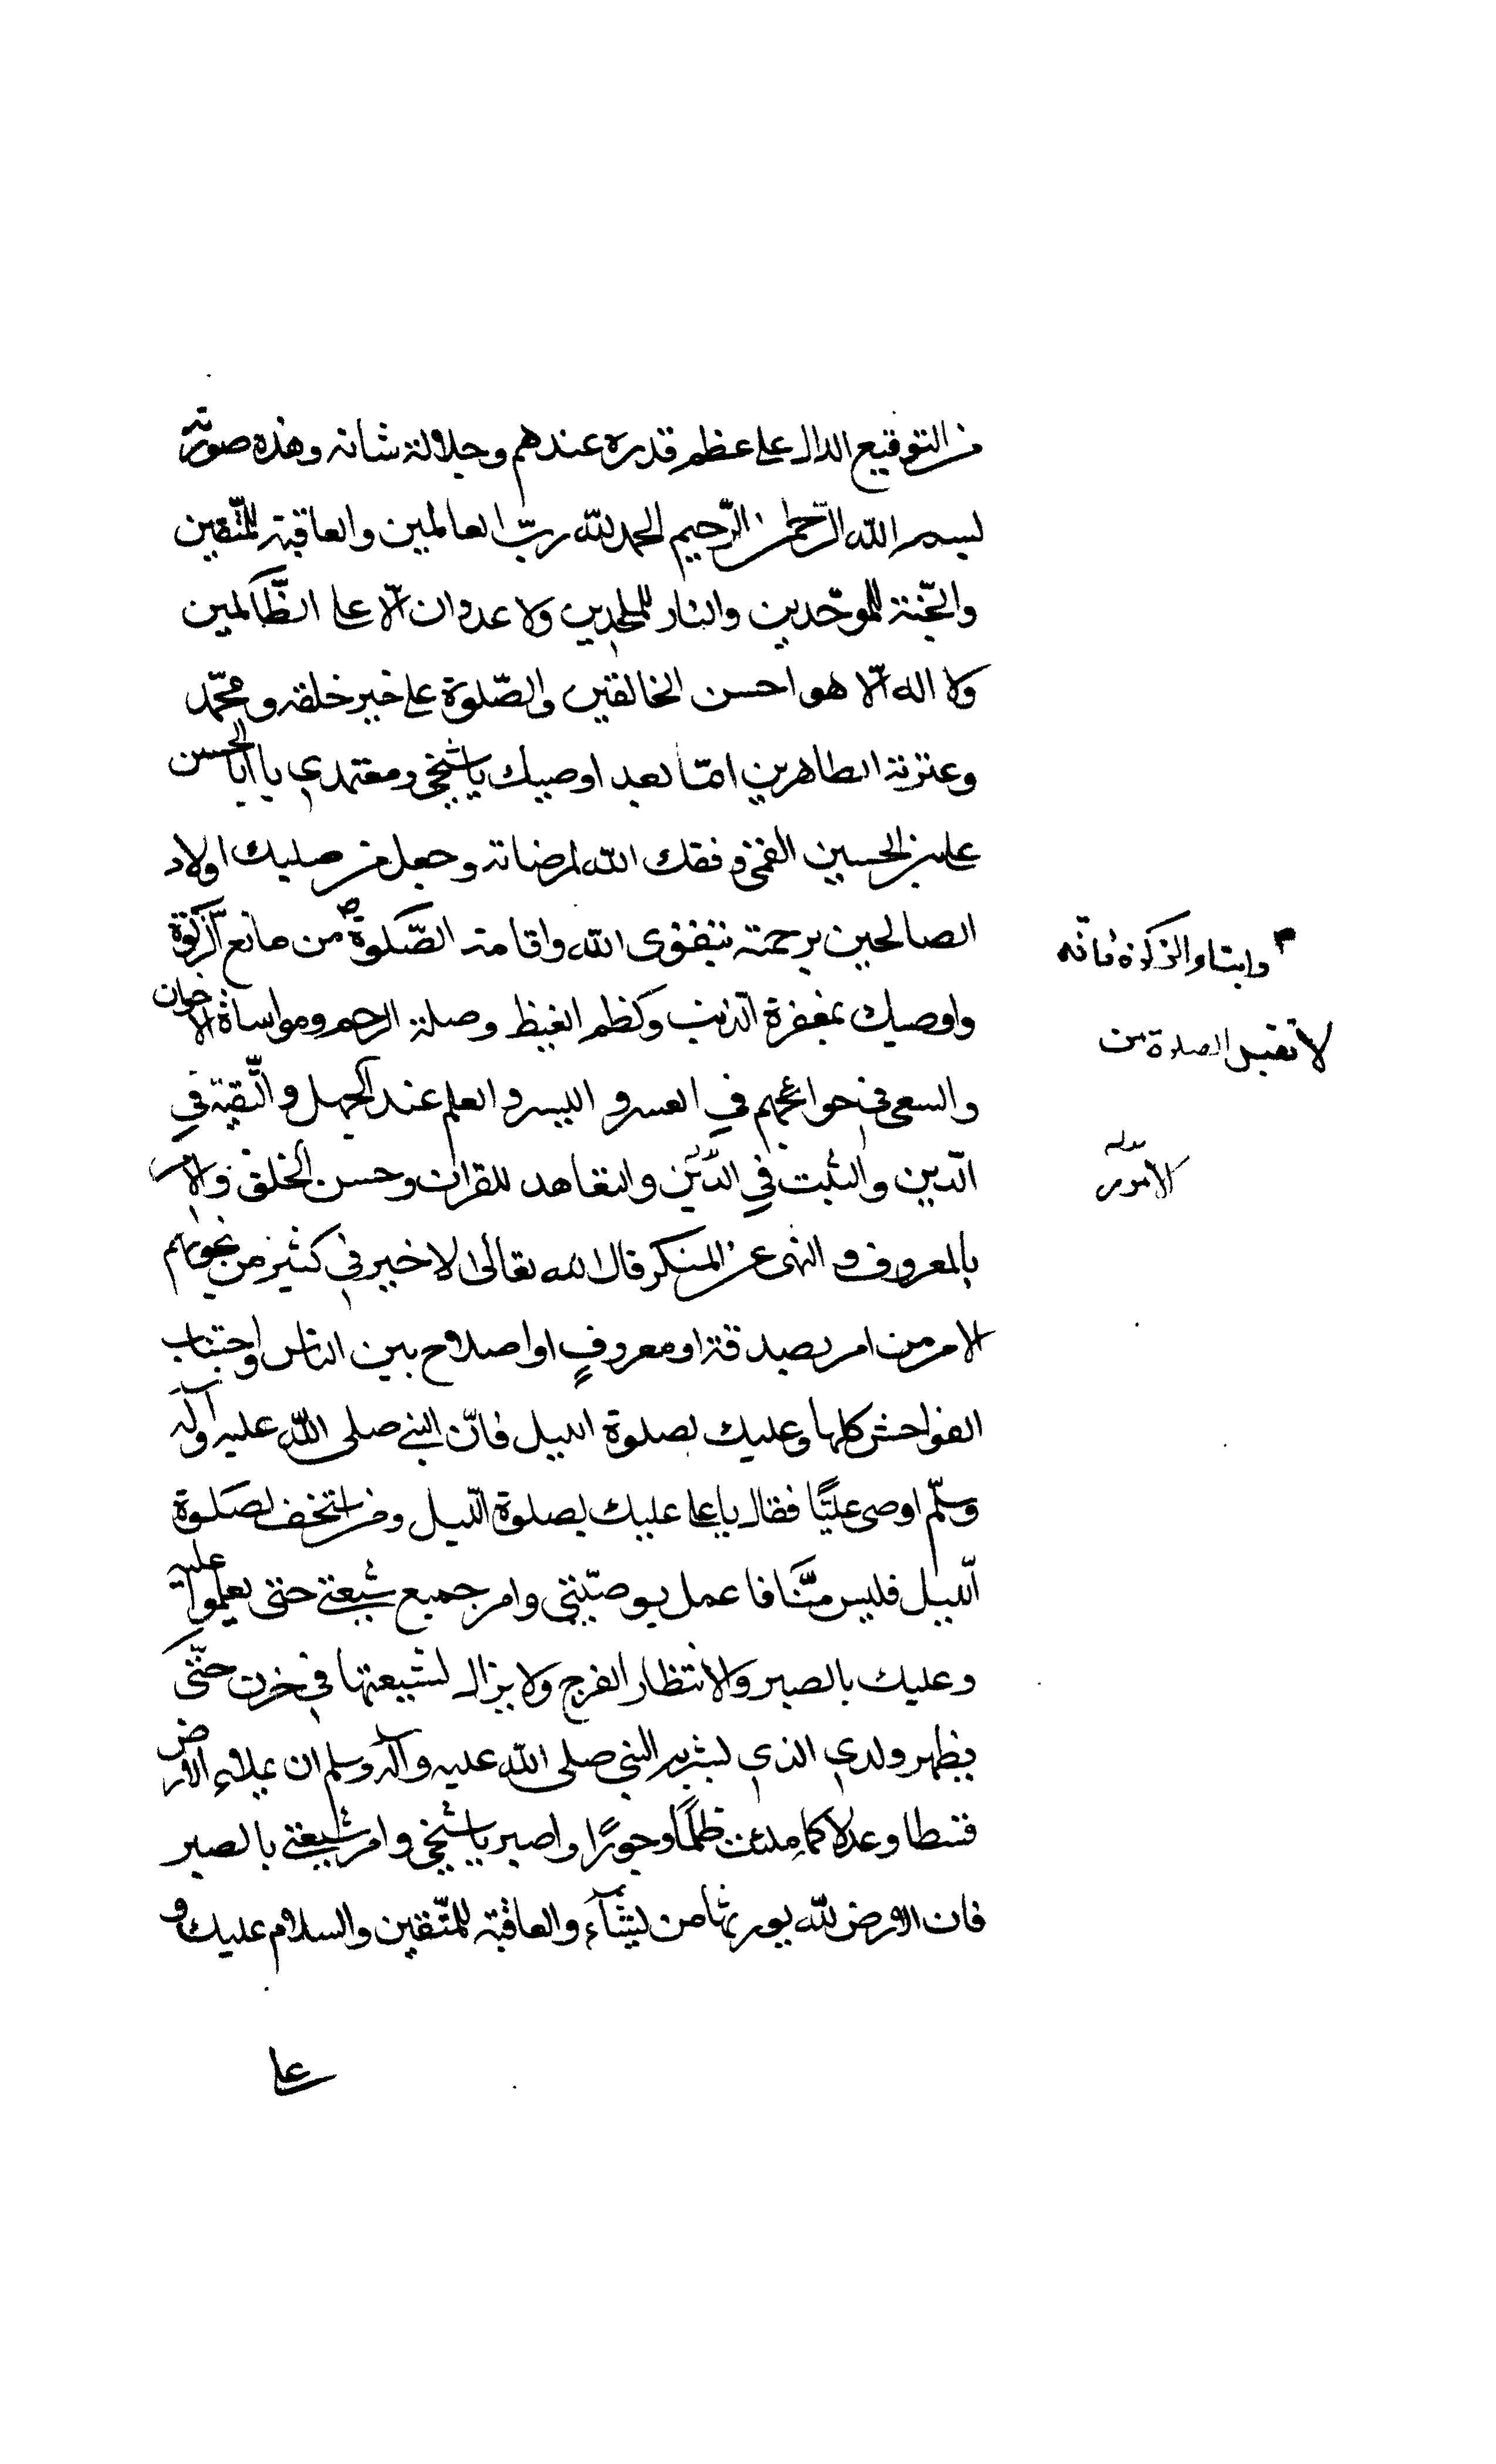 من التوقيع الدال على عظم قدره عندهم وجلالة شانه وهذه صورته
بسم الله الرّحمن الرّحيم الحمد لله ربّ العالمين والعاقبة للمتّقين
والجّنة للموحّدين والنار للملحدين ولا عدوان الّا على الظّالمين
ولا اله الّا هو احسن الخالقين والصّلوة على خير خلقه ومحمّد
وعترته الطاهرين امّا بعد اوصيك يا شيخي ومعتمدي يا ابا الحسن
على بن الحسين القمى وفقك الله لمرضاته وجعل من صلبك اولاد
الصالحين برحمته بتقوى الله واقامة الصّلوة من مانع الزّكوة
واوصيك بمغفرة الذّنب وكظم الغيظ وصلة الرحم ومواساة الاخوان
والسعى في حوائجهم في العسر و اليسر و العلم عند الجهل والتّفقة في
الّدين والتثبت في الدّين والتعاهد للقران وحسن الخلق والامر
بالمعروف و النهى عن المنكر قال الله تعالى لا خير في كثير من نجويهم
الا من امر بصدقة او معروفٍ او اصلاح بين الناس واجتناب
الفواحش كلها وعليك بصلوة الليل فانّ النبي صلى اللّه عليه وآله
وسلّم اوصى عليًّا فقال يا على عليك بصلوة اللّيل ومن استخف بصلوة
اللّيل فليس منّا فاعمل بوصيّتي وامر جميع شيعتي حتى يعملوا عليه
وعليك بالصبر والانتظار الفرج ولا يزال لشيعتها في حزن حتّى
يظهر ولدي الذي بشر به النبي صلى اللّه عليه وآله وسلم ان يملاء الارض
قسطا وعدلا كما ملئت ظلمًا وجورًا واصبر يا شيخي وامر شيعتي بالصبر
فان الارض للّه يورثها من يشآء والعاقبة للمتّقين والسلام عليك و
على
وايتاء الزكوة فانه
لا تقبل الصلوة من
الامور